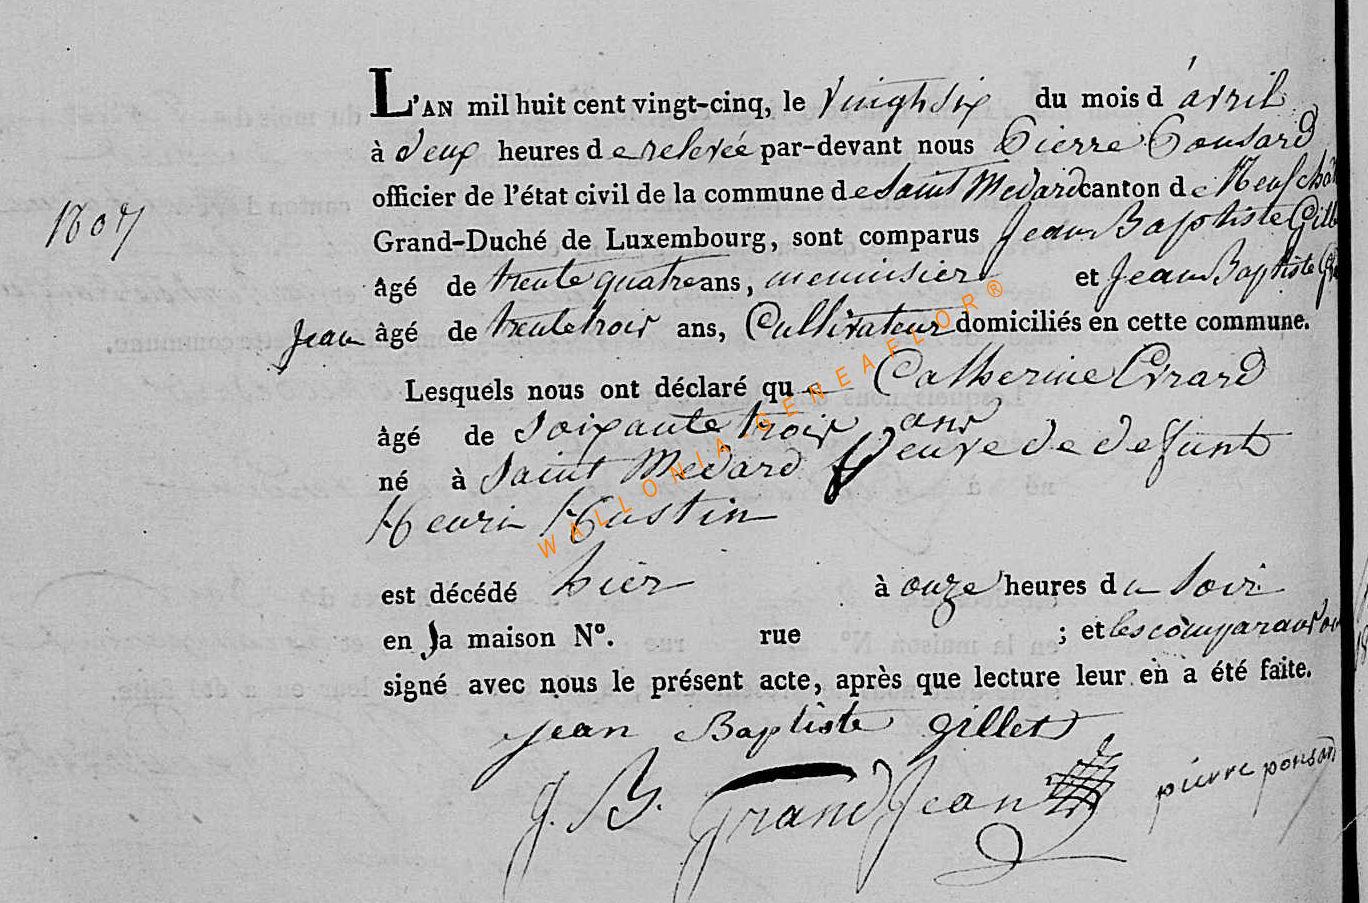 L'AN mil huit cent vingt-cinq, le vingh six du mois d'avril
à deux heures de relevée par-devant nous Pierre Ponsard
officier de l'état civil de la commune de Saint Medard canton de Neufchât
1807
Grand-Duché de Luxembourg, sont comparus Jean Baptiste Gille
âgé de trente quatre ans, menuisier et Jean Baptiste Gr
Jean âgé de trente trois ans, Cultivateur domiciliés en cette commune.
Lesquels nous ont déclaré que Catherine Girard
âgé de soixante trois ans
né à Saint Medard Veuve de defunt
Henri Hustin
est décédé hier à onze heures du soir
en sa maison N°. rue ; et les comparans on
signé avec nous le présent acte, après que lecture leur en a été faite.
jean Baptiste gillet
J. B. GrandJean pierre ponsard
WALLONIA-GENEAFLOR®